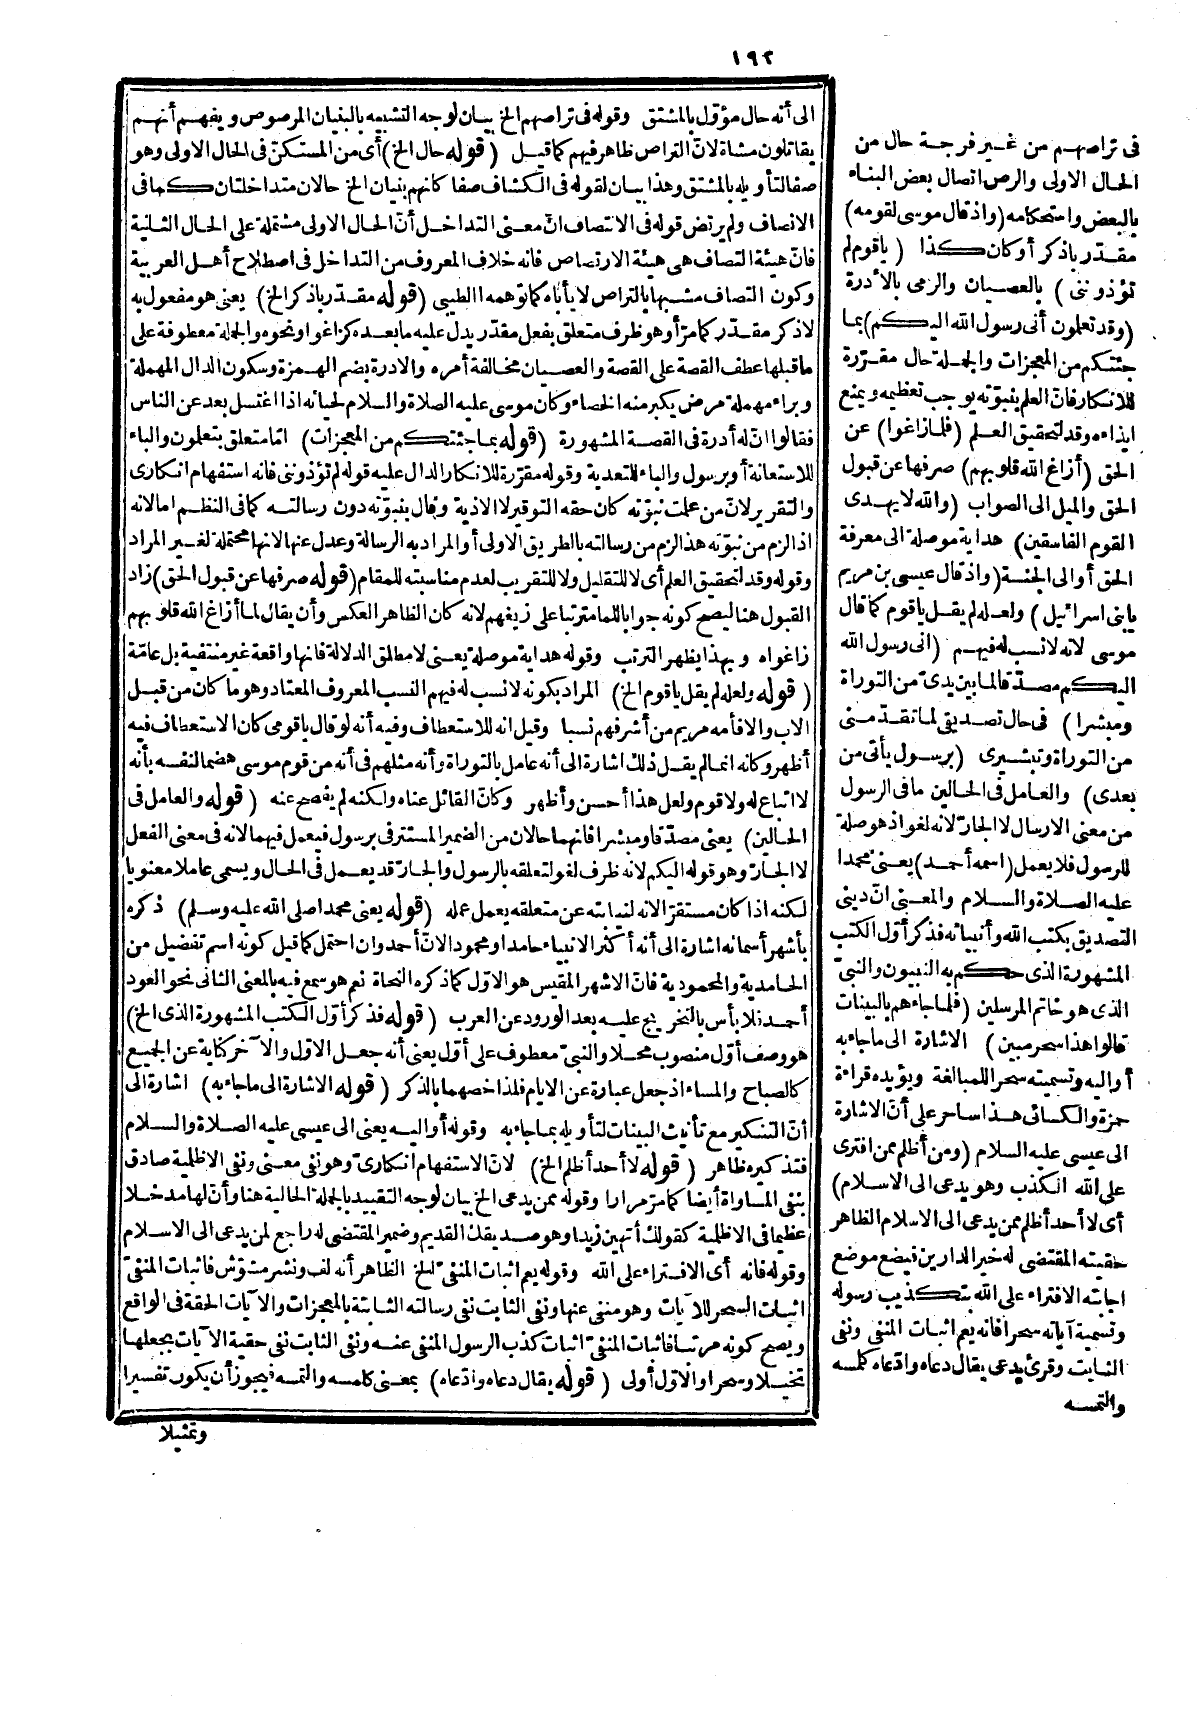 ١٩٢
الى أنه حال مؤوّل بالمشتق وقوله فى تراصهم الخ بيان لوجه التشبيه بالبنيان المرصوص ويفهم أنهم
يقاتلون مشاة لانّ التراص ظاهر فيهم كما قيل (قوله حال الخ) أى من المستكنّ فى الحال الاولى وهو
صفا لتأويله بالمشتق وهذا بيان لقوله فى الكشاف صفا كانهم بنيان الخ حالان متداخلتان كما فى
الانصاف ولم يرتض قوله فى الانتصاف انّ معنى التداخل أنّ الحال الاولى مشتملة على الحال الثانية
فانّ هيئة التصاف هى هيئة الارتصاص فانه خلاف المعروف من التداخل فى اصطلاح أهل العربية
وكون التصاف مشبها بالتراص لا يأباه كما توهمه الطيبى (قوله مقدّر باذكر الخ) يعنى هو مفعول به
لاذكر مقدّر كما مرّ أو هو ظرف متعلق بفعل مقدّر يدل عليه ما بعده كزاغوا ونحوه والجملة معطوفة على
ما قبلها عطف القصة على القصة والعصيان مخالفة أمره والادرة بضم الهمزة وسكون الدال المهملة
وبراء مهملة مرض يكبر منه الخصاء وكان موسى عليه الصلاة والسلام لحيائه اذا اغتسل بعد عن الناس
فقالوا انّ له أدرة فى القصة المشهورة (قوله بما جئتكم من المعجزات) امّا متعلق بتعلمون والباء
للاستعانة أو برسول والباء للتعدية وقوله مقرّرة للانكار الدال عليه قوله لم تؤذوننى فانه استفهام انكارى
والتقرير لانّ من علمت نبوّته كان حقه التوقير لا الاذية وقال بنبوّته دون رسالته كما فى النظم امالانه
اذا لزم من نبوّته هذا لزم من رسالته بالطريق الاولى أو المراد به الرسالة وعدل عنها لانها محتملة لغير المراد
وقوله وقد لتحقيق العلم أى لا للتقليل ولا للتقريب لعدم مناسبته للمقام (قوله صرفها عن قبول الحق) زاد
القبول هنا ليصح كونه جوابا للما مترتبا على زيغهم لانه كان الظاهر العكس وأن يقال لما أزاغ الله قلوبهم
زاغوا وبهذا يظهر الترتب وقوله هداية موصلة يعنى لا مطلق الدلالة فانها واقعة غير منتفية بل عامّة
(قوله ولعله لم يقل يا قوم الخ) المراد بكونه لا نسب له فيهم النسب المعروف المعتاد وهو ما كان من قبل
الاب والا فأمه مريم من أشرفهم نسبا وقيل انه للاستعطاف وفيه أنه لو قال يا قومى كان الاستعطاف فيه
أظهر وكانه انما لم يقل ذلك اشارة الى أنه عامل بالتوراة وأنه مثلهم فى أنه من قوم موسى هضما لنفسه بأنه
لا اتباع له ولا قوم ولعل هذا أحسن وأظهر وكانّ القائل عناه ولكنه لم يفصح عنه (قوله والعامل فى
الحالين) يعنى مصدّقا ومبشرا فانهما حالان من الضمير المستتر فى برسول فيعمل فيهما لانه فى معنى الفعل
لا الجارّ وهو قوله اليكم لانه ظرف لغو لتعلقه بالرسول والجارّ قد يعمل فى الحال ويسمى عاملا معنويا
لكنه اذا كان مستقرّا لانه لنيابته عن متعلقه يعمل عمله (قوله يعنى محمدا صلى الله عليه وسلم) ذكره
بأشهر أسمائه اشارة الى أنه أكثر الانبياء حامدا ومحمودا لانّ أحمد وان احتمل كما قيل كونه اسم تفضيل من
الحامدية والمحمودية فانّ الاشهر المقيس هو الاوّل كما ذكره النحاة نعم هو سمع فيه بالمعنى الثانى نحو العود
أحمد فلا بأس بالتخريج عليه بعد الورود عن العرب (قوله فذكر أوّل الكتب المشهورة الذى الخ)
هو وصف أوّل منصوب محلا والنبىّ معطوف على أوّل يعنى أنه جعل الاوّل والآخر كناية عن الجميع
كالصباح والمساء اذ جعل عبارة عن الايام فلذا خصهما بالذكر (قوله الاشارة الى ما جاء به) اشارة الى
أنّ التذكير مع تأنيث البينات لتأويله بما جاء به وقوله أو اليه يعنى الى عيسى عليه الصلاة والسلام
فتذكيره ظاهر (قوله لا أحد أظلم الخ) لانّ الاستفهام انكارىّ وهو نفى معنى ونفى الاظلمية صادق
بنفى المساواة أيضا كما مرّ مرارا وقوله ممن يدعى الخ بيان لوجه التقييد بالجملة الحالية هنا وأنّ لها مدخلا
عظيما فى الاظلمية كقولك أتهين زيدا وهو صديقك القديم وضمير المقتضى له راجع لمن يدعى الى الاسلام
وقوله فانه أى الافتراء على الله وقوله يعم اثبات المنفىّ الخ الظاهر أنه لف ونشر مشوّش فاثبات المنفىّ
اثبات السحر للآيات وهو منفى عنها ونفى الثابت نفى رسالته الثابتة بالمعجزات والآيات الحقة فى الواقع
ويصح كونه مرتبا فاثبات المنفىّ اثبات كذب الرسول المنفى عنه ونفى الثابت نفى حقية الآيات بجعلها
تخيلا وسحرا والاوّل أولى (قوله يقال دعاه وادّعاه) بمعنى كلمسه والتمسه فيجوز أن يكون تفسيرا
وتمثيلا
فى تراصهم من غير فرجة حال من
الحال الاولى والرص اتصال بعض البناء
بالبعض واستحكامه (واذ قال موسى لقومه)
مقدّر باذكر أو كان كذا (يا قوم لم
تؤذوننى) بالعصيان والرمى بالأدرة
(وقد تعلمون أنى رسول الله اليكم) بما
جئتكم من المعجزات والجملة حال مقرّرة
للانكار فانّ العلم بنبوّته يوجب تعظيمه ويمنع
ايذاءه وقد لتحقيق العلم (فلما زاغوا) عن
الحق (أزاغ الله قلوبهم) صرفها عن قبول
الحق والميل الى الصواب (والله لا يهدى
القوم الفاسقين) هداية موصلة الى معرفة
الحق أو الى الجنة (واذ قال عيسى بن مريم
يا بنى اسرائيل) ولعله لم يقل يا قوم كما قال
موسى لانه لا نسب له فيهم (انى رسول الله
اليكم مصدّقا لما بين يدىّ من التوراة
ومبشرا) فى حال تصديقى لما تقدّمنى
من التوراة وتبشيرى (برسول يأتى من
بعدى) والعامل فى الحالين ما فى الرسول
من معنى الارسال لا الجارّ لانه لغو اذ هو صلة
للرسول فلا يعمل (اسمه أحمد) يعنى محمدا
عليه الصلاة والسلام والمعنى انّ دينى
التصديق بكتب الله وأنبيائه فذكر أوّل الكتب
المشهورة الذى حكم به النبيون والنبىّ
الذى هو خاتم المرسلين (فلما جاءهم بالبينات
قالوا هذا سحر مبين) الاشارة الى ما جاء به
أو اليه وتسميته سحرا للمبالغة ويؤيده قراءة
حمزة والكسائى هذا ساحر على أنّ الاشارة
الى عيسى عليه السلام (ومن أظلم ممن افترى
على الله الكذب وهو يدعى الى الاسلام)
أى لا أحد أظلم ممن يدعى الى الاسلام الظاهر
حقيته المقتضى له خير الدارين فيضع موضع
اجابته الافتراء على الله بتكذيب رسوله
وتسمية آياته سحرا فانه يعم اثبات المنفى ونفى
الثابت وقرئ يدعى يقال دعاه وادّعاه كلمسه
والتمسه